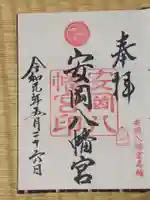 奉拝
安岡八幡宮
安岡八幡宮印
令和元年五月二十六日